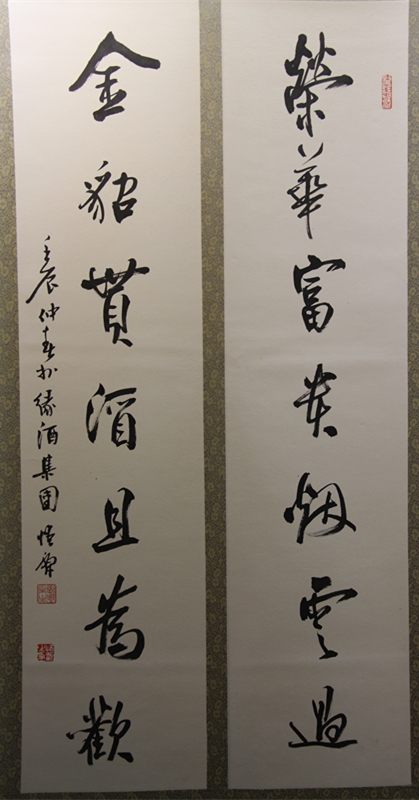 榮華富貴烟雲過
金貂貰酒且為歡
壬辰仲春於緣酒集團